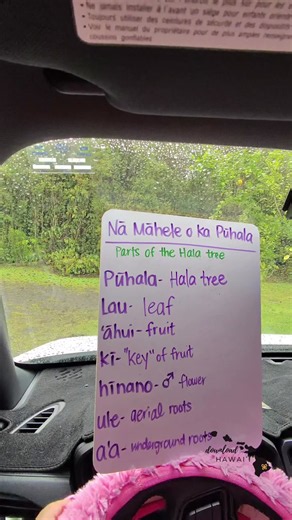 Ne jamais installer à l'avant un siège pour enfants
toujours utiliser des ceintures de sécurité et des
Voir le manuel du propriétaire pour de plus amples
gonflables
Nā Māhele o ka Pūhala
Parts of the Hala tree
Pūhala- Hala tree
Lau- leaf
'āhui- fruit
kī- "key" of fruit
hīnano- ♂ flower
ule- aerial roots
a'a- underground roots
download
HAWAI'I